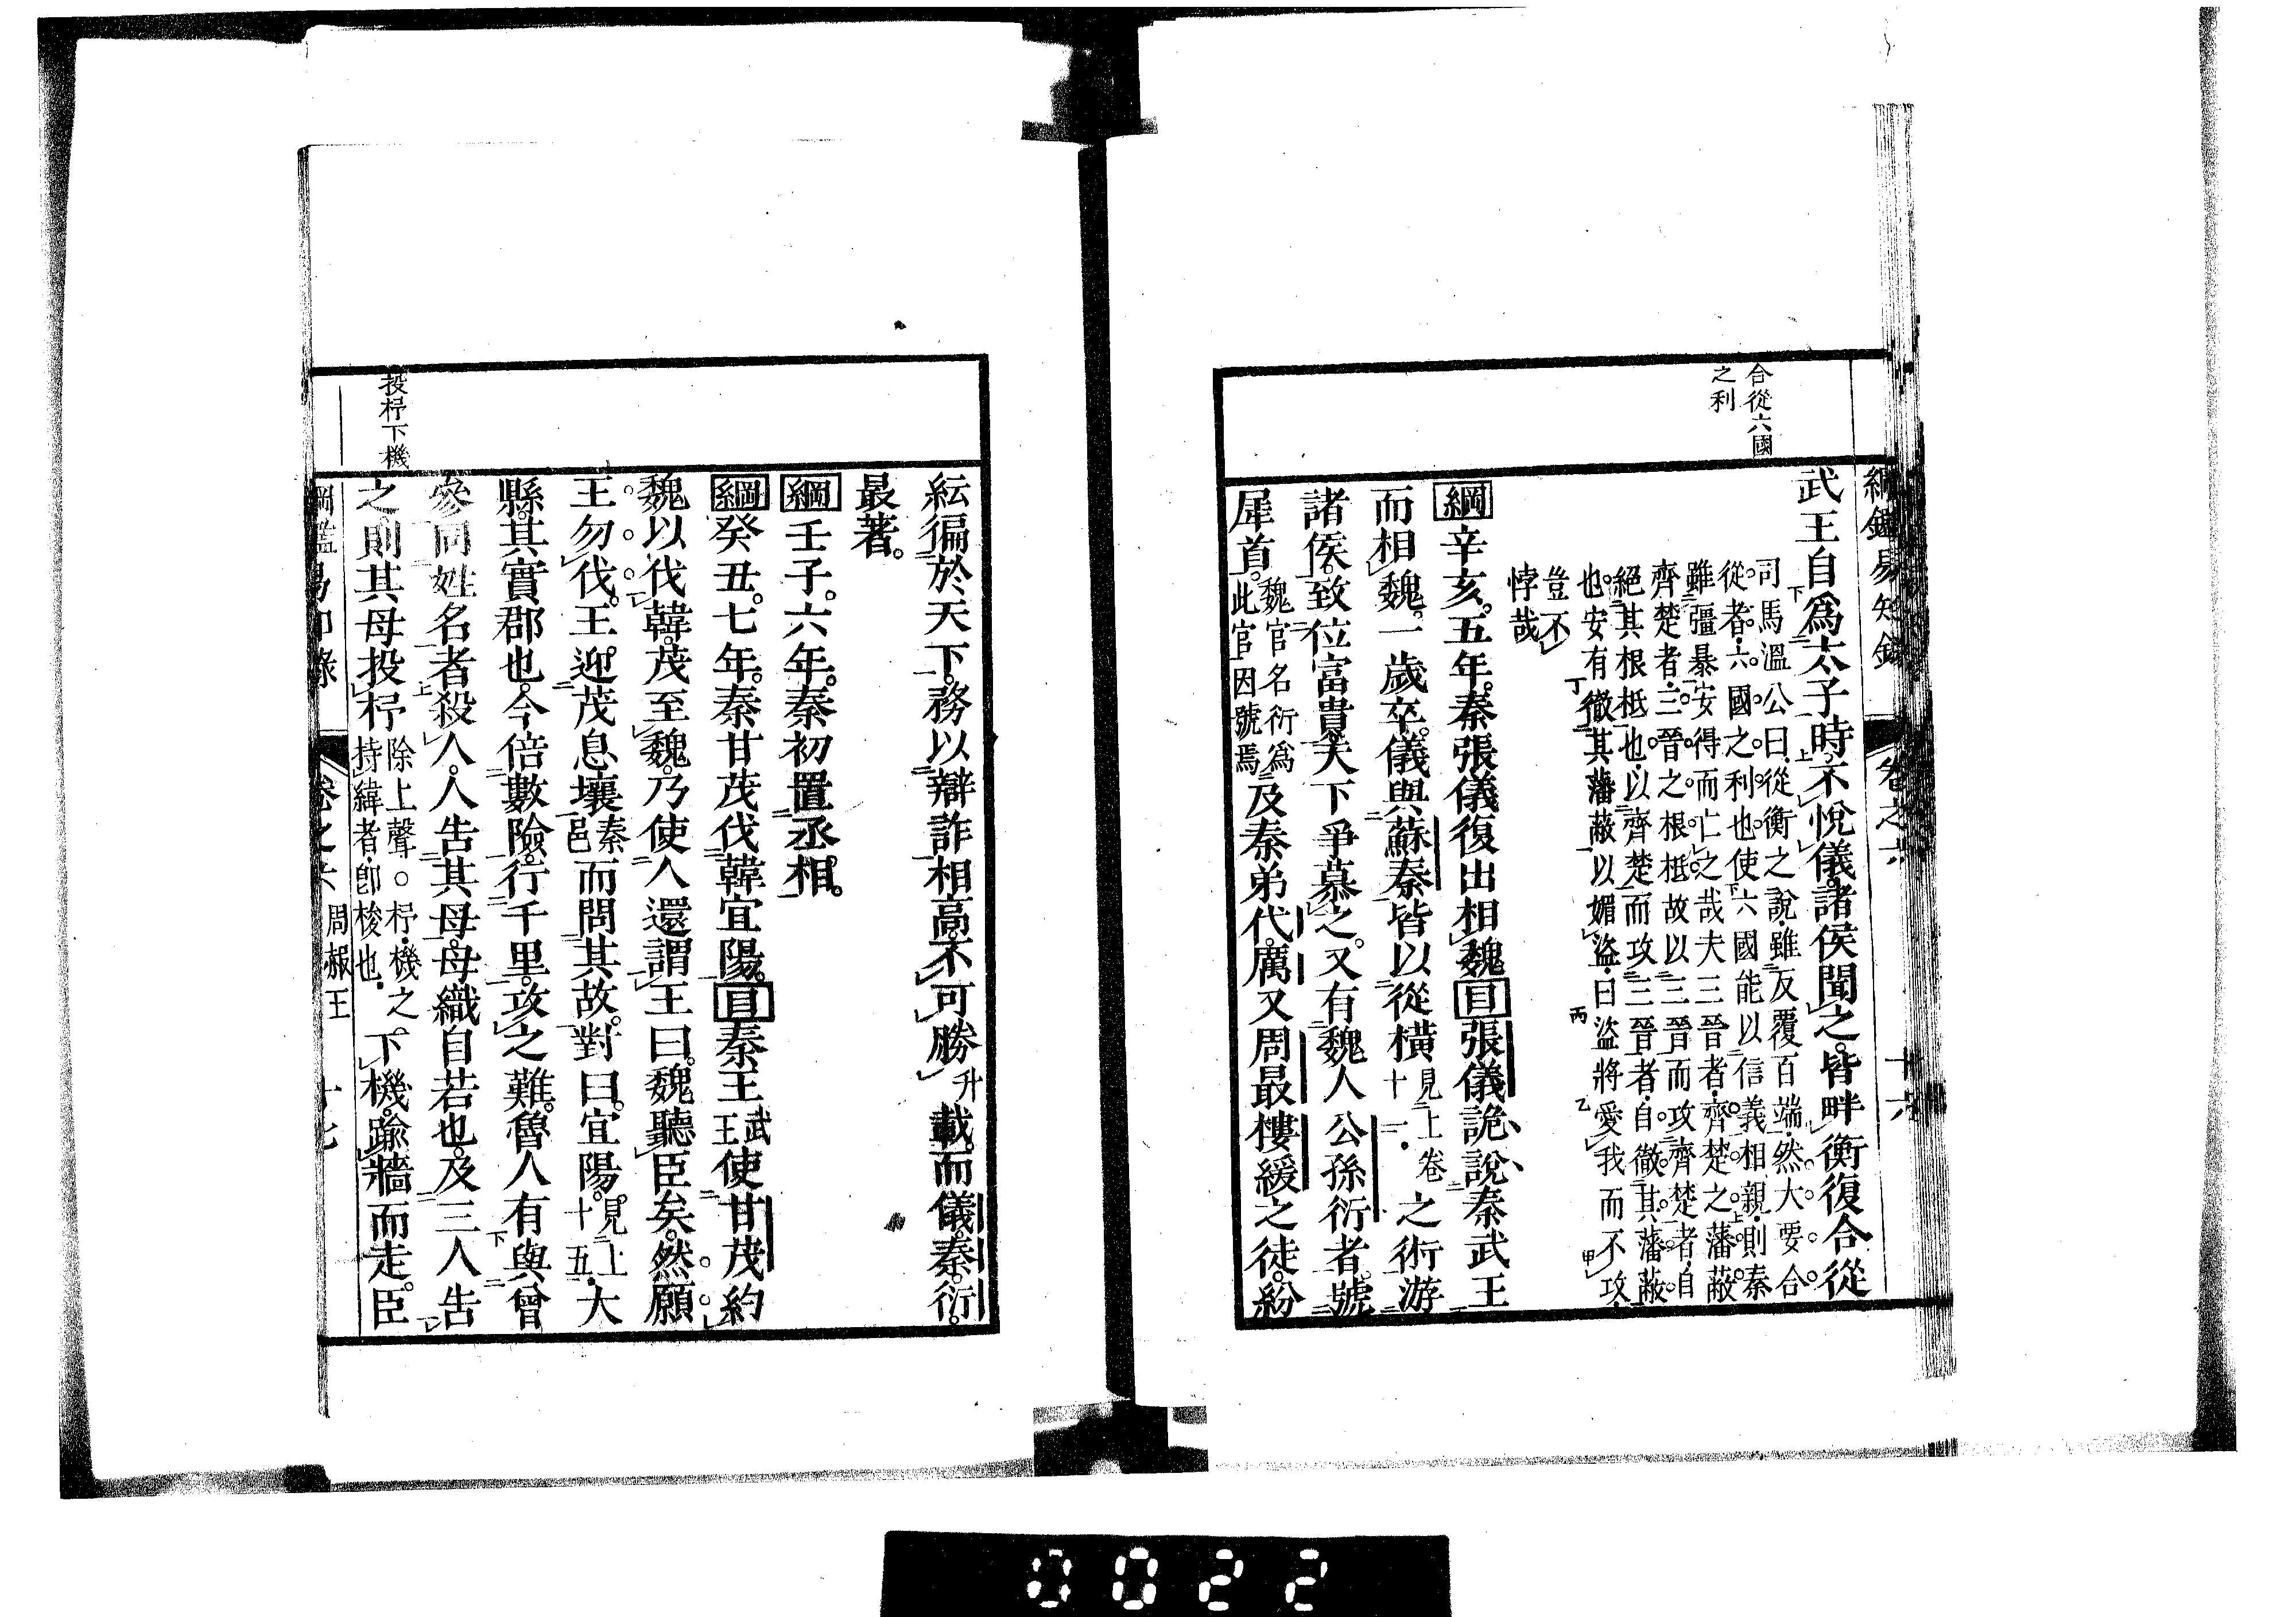 合從六國
之利
綱鑑易知錄 卷之六 十六
武王自爲太子時。不悅儀。諸侯聞之。皆畔衡復合從
司馬溫公曰從衡之說雖反覆百端然大要合
從者六國之利也使六國能以信義相親則秦
雖彊暴安得而亡之哉夫三晉者齊楚之藩蔽
齊楚者三晉之根柢故以三晉而攻齊楚者自
絕其根柢也以齊楚而攻三晉者自徹其藩蔽
也安有徹其藩蔽以媚盜曰盜將愛我而不攻
豈不
悖哉
綱辛亥。五年。秦張儀復出相魏目張儀詭說秦武王
而相魏。一歲卒。儀與蘇秦皆以從橫見上卷十一。之術游
諸侯。致位富貴。天下爭慕之。又有魏人公孫衍者。號
犀首。魏官名衍爲此官因號焉及秦弟代。厲又周最樓緩之徒。紛
紜徧於天下。務以辯詐相高。不可勝升載。而儀。秦。衍。
最著。
綱壬子。六年。秦初置丞相。
綱癸丑。七年。秦甘茂伐韓宜陽。目秦王武王使甘茂約
魏以伐韓。茂至魏。乃使人還謂王曰。魏聽臣矣。然願
王勿伐。王迎茂息壤秦邑而問其故。對曰。宜陽。見上十五。大
縣。其實郡也。今倍數險。行千里。攻之難。魯人有與曾
參同姓名者殺人。人告其母。母織自若也。及三人告
之。則其母投杼除上聲。○杼。機之持緯者。卽梭也。下機。踰牆而走。臣
投杼下機
綱鑑易知錄 卷之六 周赧王 十七
0022